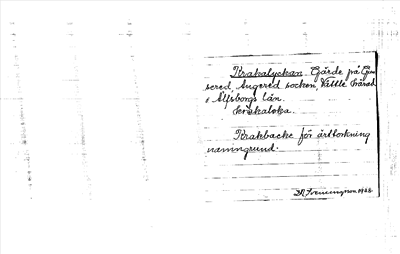 Krakalyckan. Gärde på Gun
sered, Angered socken, Vättle härad
i Älfsborgs län.
Kråkalöka.
Krakbacke för ärttorkning
namngrund.
1928.